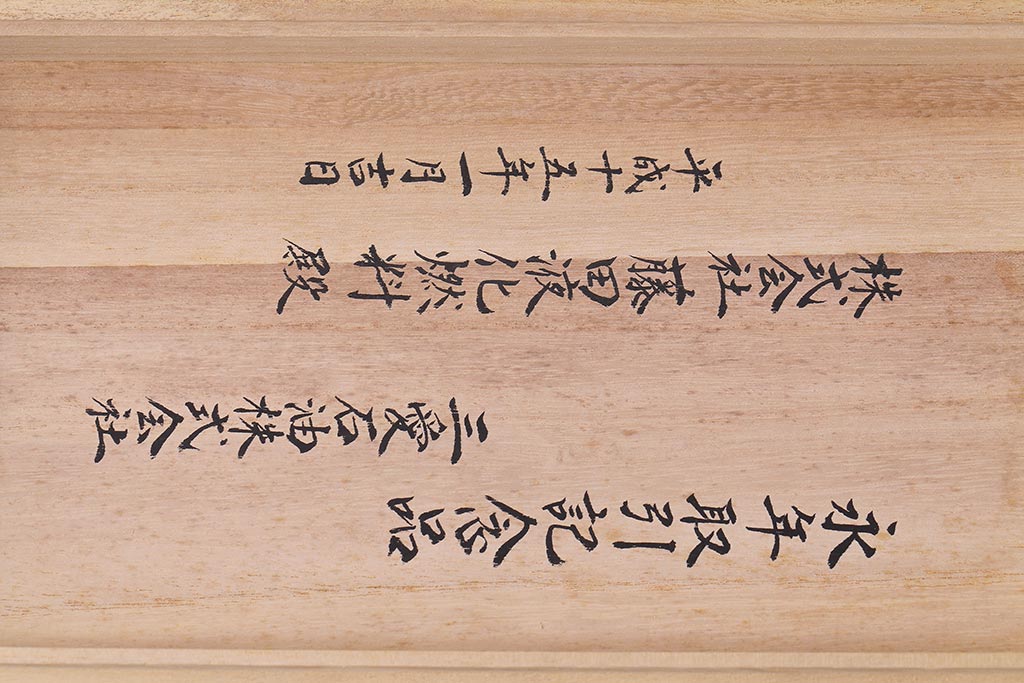 永年取引記念品
三愛石油株式会社
株式会社藤田液化燃料 殿
平成十五年一月吉日